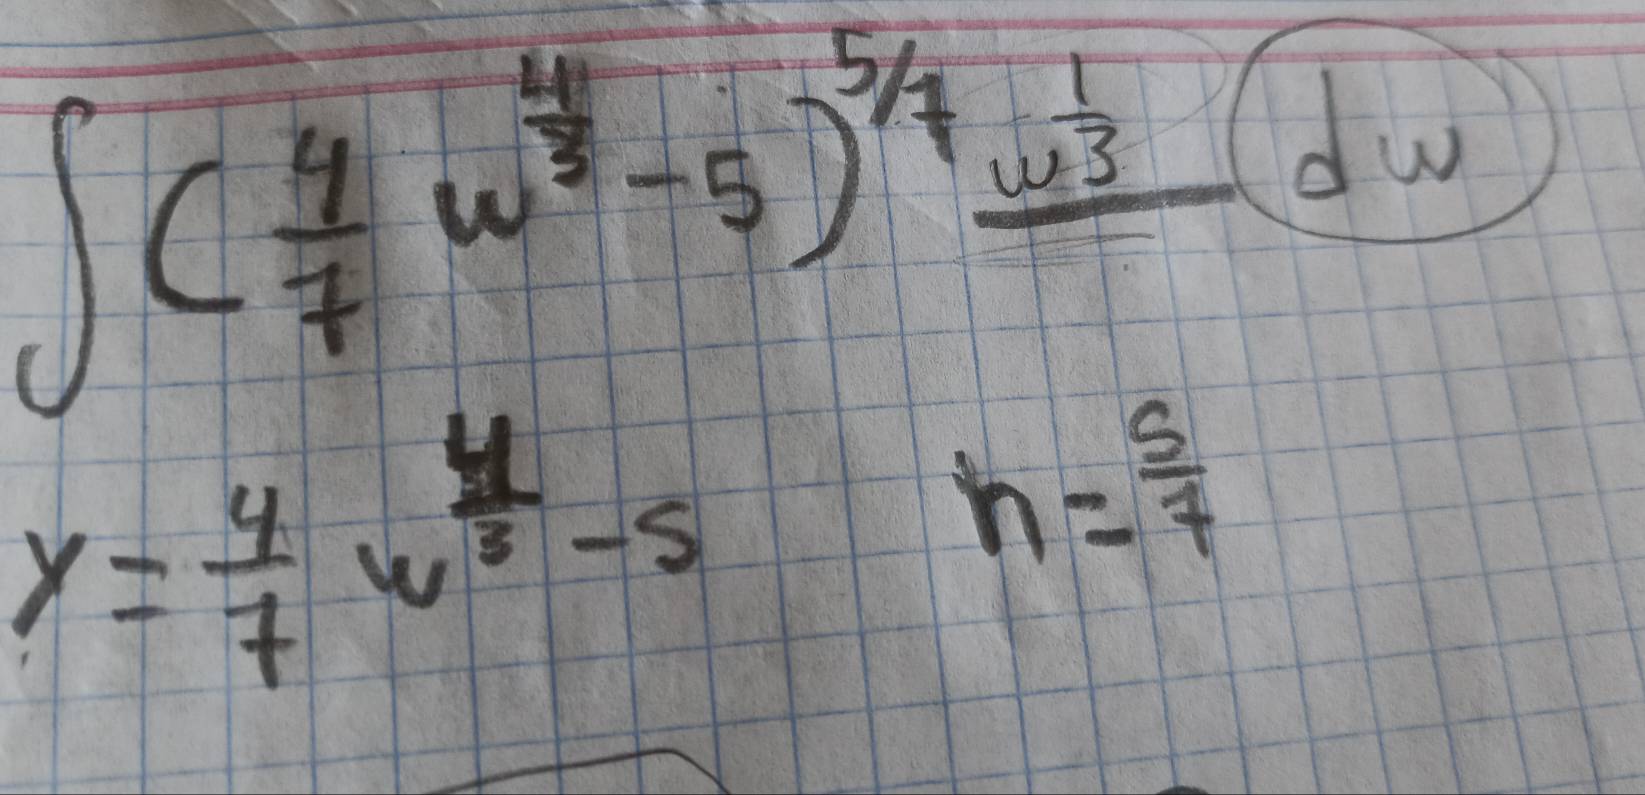 ∫ ( 4/7 w^(4/3) - 5 )^(5/7) w^(1/3) dw
y = 4/7 w^(4/3) - 5 n = 5/7